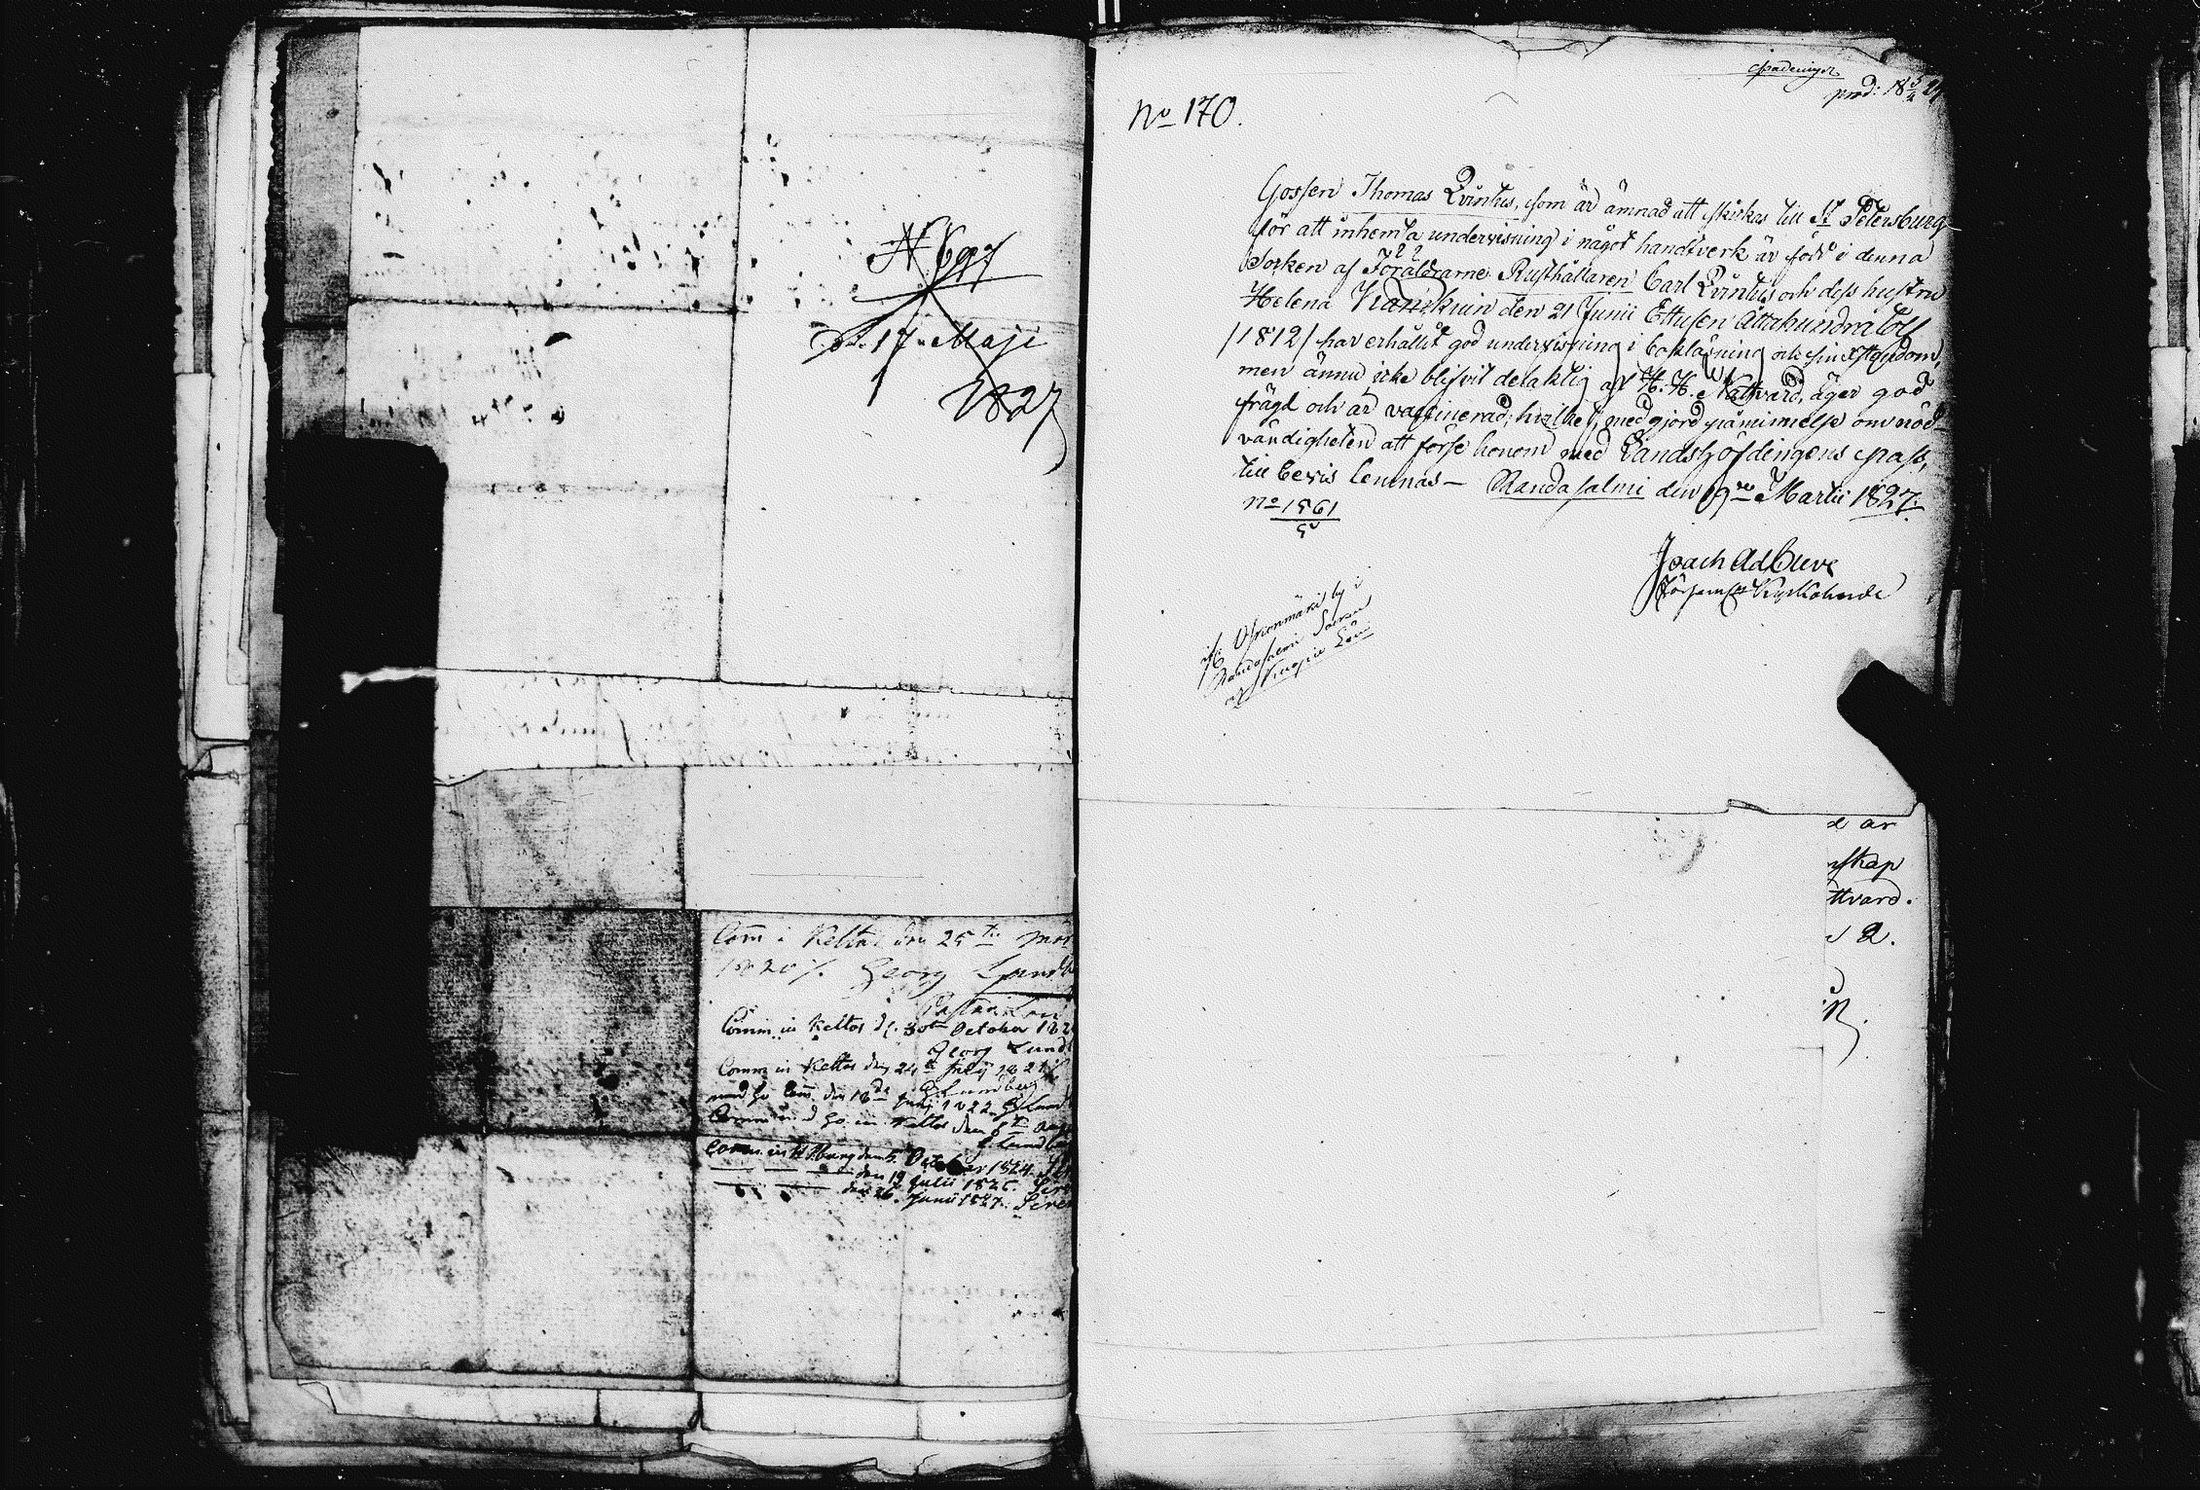 d. 17 Maji
1827
Com i Keltos den 25 te
Georg
Comm in Keltos d. 30 ten October 182
Georg Lund
Comm in Keltos den 24 te July 1821
G Lundberg
den 18 ten Juny 1822 G Lund
in Keltos den 8 te Aug
G Lundbe
Comm. in den 5. October 1824.
den 19 Julii 1825.
den 26. Junii 1827.
prod: 18 3/4 27
No 170.
Gossen Thomas Qvintus, som är ämnad att skickas till St Petersburg
för att inhemta undervisning i något handtverk är född i denna
Socken af Föräldrarne Rusthållaren Carl Qvintus och dess hustru
Helena den 21 Junii Ettusen Åttahundra Tolf
/1812/ har erhållit god undervisning i bokläsning och sin Xstendom,
men ännu icke blifvit delaktig af H. H. Nattvard, äger god
frägd och är vaccinerad; hvilket, med gjord påminnelse om nöd-
vändigheten att förse honom med Landshöfdingens pass,
till bevis lemnas — Randasalmi den 19 de Martii 1827.
No 1561
Joach Ad Cleve
Kyrkoherde
by i
Randasalmi Socken
af Kuopio Län
e är
skap
ttvard.